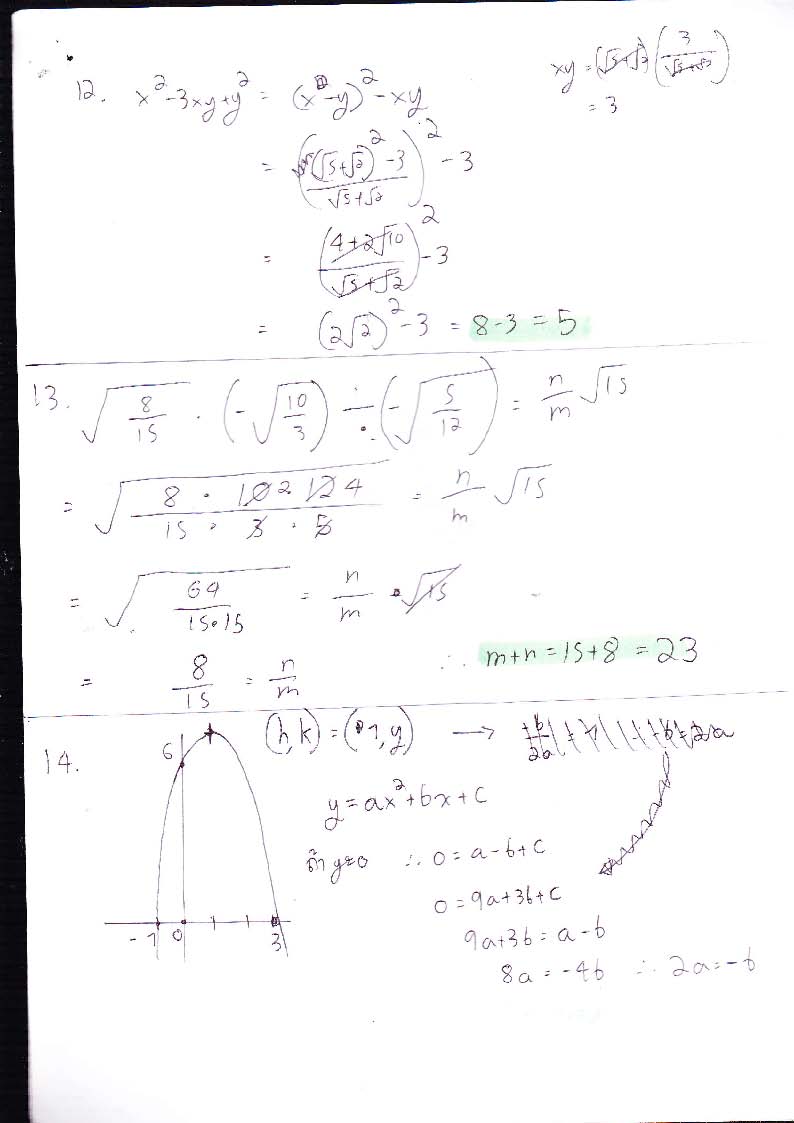 12. x² - 3xy + y² = (x - y)² - xy
xy = (√5+√2) (3/(√5+√2))
= 3
= (((√5+√2)² - 3)/(√5+√2))² - 3
= ((4+2√10)/(√5+√2))² - 3
= (2√2)² - 3 = 8-3 = 5
13. √(8/15) · (-√(10/3)) ÷ (-√(5/12)) = n/m √15
= √((8 · 10 2 12 4)/(15 · 3 · 5)) = n/m √15
= √(64/(15·15)) = n/m · √15
= 8/15 = n/m ∴ m+n = 15+8 = 23
14.
(h,k) = (1,y) →
6
y = ax² + bx + c
ถ้า y=0 ∴ 0 = a-b+c
0 = 9a+3b+c
9a+3b = a-b
8a = -4b ∴ 2a = -b
-1 0 3